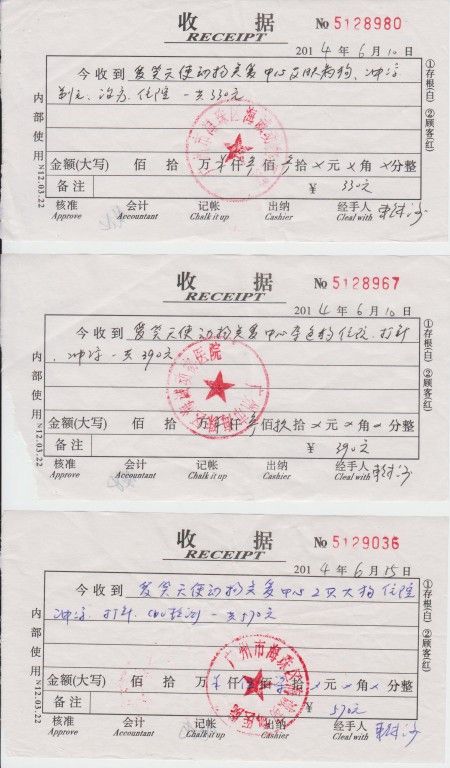 收 据 № 5128980
RECEIPT
2014 年 6 月 10 日
今收到 爱笑天使动物关爱中心 狗、冲凉
治疗、住院 一共330元
金额(大写) 佰 拾 万 仟 叁 佰 叁 拾 × 元 × 角 × 分整
备 注 ¥ 330元
核准 会计 记帐 出纳 经手人
Approve Accountant Chalk it up Cashier Cleal with
内部使用 N12.03.22
①存根(白) ②顾客(红)
收 据 № 5128967
RECEIPT
2014 年 6 月 10 日
今收到 爱笑天使动物关爱中心 狗住院、打针
、冲凉 一共390元
广州市海珠区 医院
金额(大写) 佰 拾 万 仟 叁 佰 玖 拾 × 元 × 角 × 分整
备 注 ¥ 390元
核准 会计 记帐 出纳 经手人
Approve Accountant Chalk it up Cashier Cleal with
内部使用 N12.03.22
①存根(白) ②顾客(红)
收 据 № 5129036
RECEIPT
2014 年 6 月 15 日
今收到 爱笑天使动物关爱中心 2只大狗 住院
冲凉、打针、 检测 一共570元
广州市海珠区 医院
金额(大写) 佰 拾 万 仟 伍 佰 柒 拾 × 元 × 角 × 分整
备 注 570元
核准 会计 记帐 出纳 经手人
Approve Accountant Chalk it up Cashier Cleal with
内部使用 N12.03.22
①存根(白) ②顾客(红)